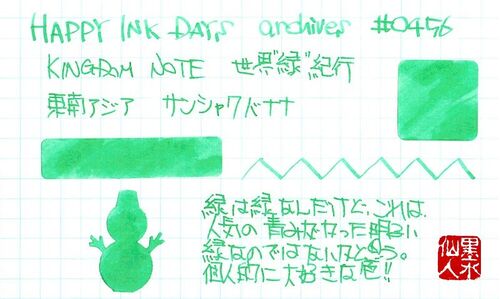 HAPPY INK DAYS archives #0456
KINGDOM NOTE 世界"緑"紀行
東南アジア サンシャクバナナ
緑は緑なんだけど、これは、
人気の青みがかった明るい
緑なのではないかと思う。
個人的に大好きな色!!
墨水
仙人